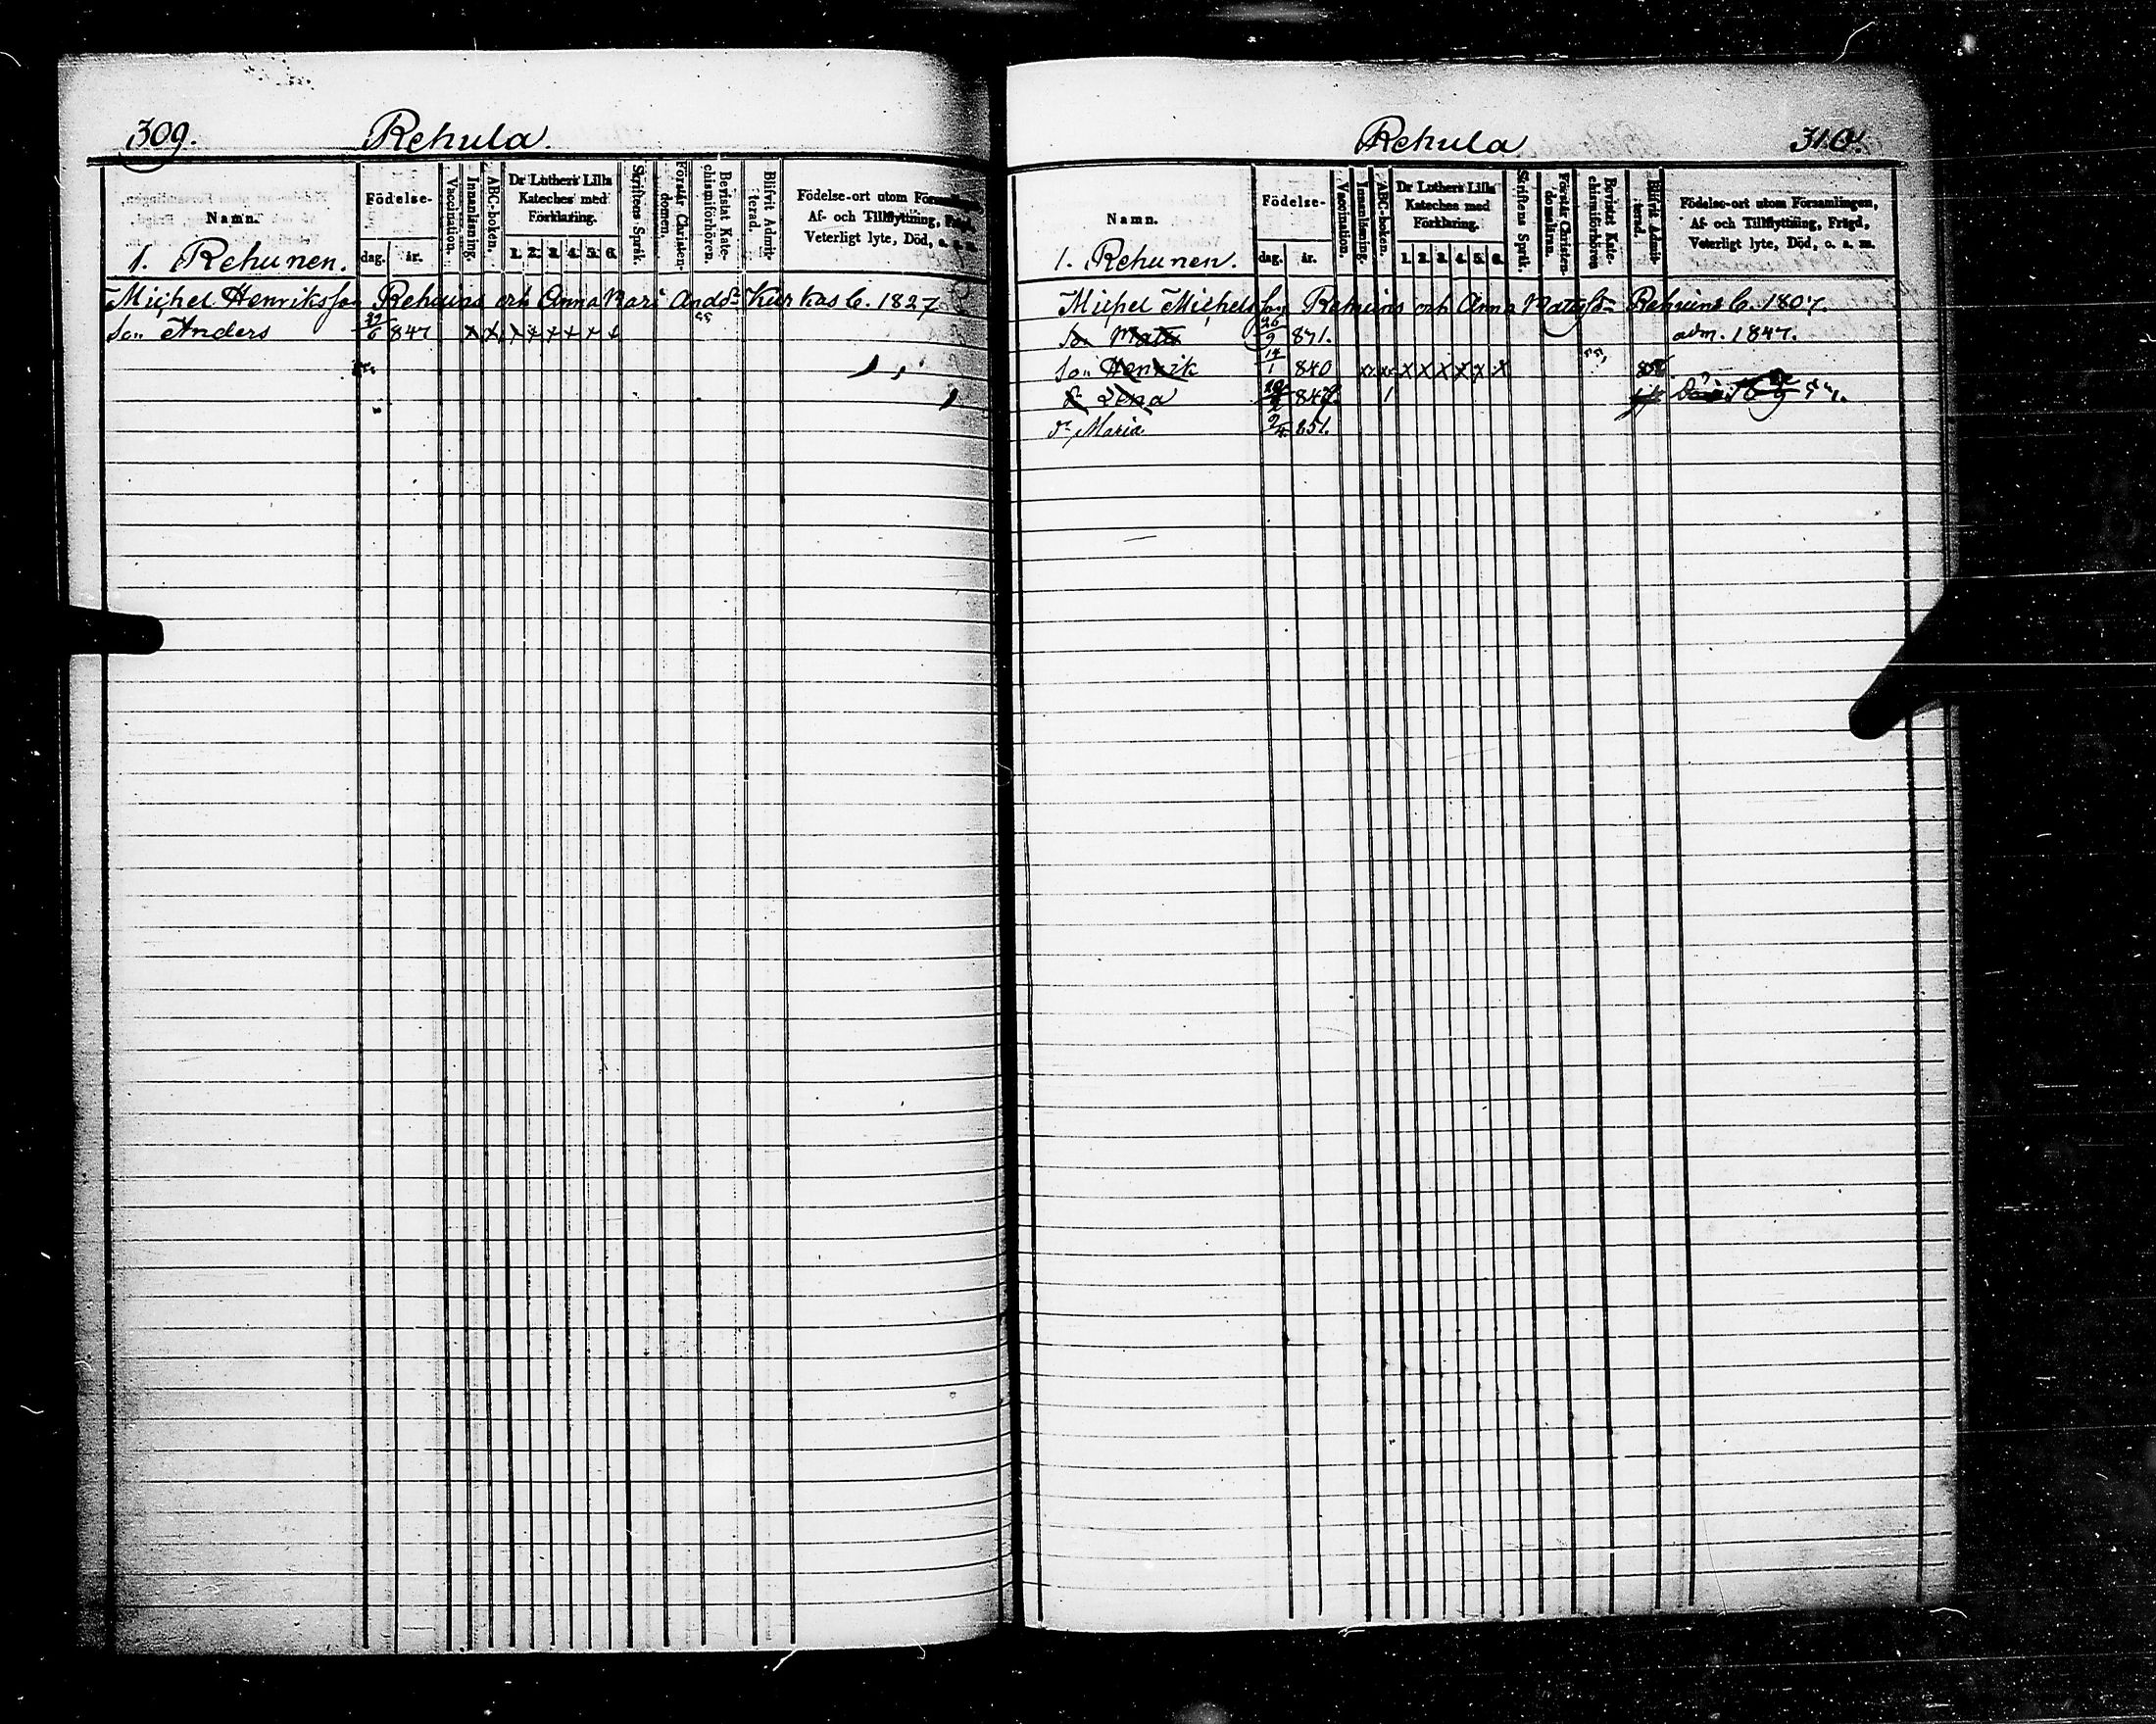 309.
Rehula
Namn.
Födelse-
dag.
år.
Vaccination.
Innanläsning.
ABC-boken.
Dr Luthers Lilla
Kateches med
Förklaring.
1. 2. 3. 4. 5. 6.
Skriftens Språk.
Förstår Christen-
domen.
Bevistat Kate-
chismiförhören.
Blifvit Admit-
terad.
Födelse-ort utom Församlingen,
Af- och Tillflyttning, Frägd,
Veterligt lyte, Död, o. a. m.
1. Rehunen.
Michel Henriksson Rehuins och Anna Kari Andsdr Kurkas b. 1827
Son Anders 29/6 847 x x x x x x x x
Rehula
310.
Namn.
Födelse-
dag.
år.
Vaccination.
Innanläsning.
ABC-boken.
Dr Luthers Lilla
Kateches med
Förklaring.
1. 2. 3. 4. 5. 6.
Skriftens Språk.
Förstår Christen-
domsläran.
Bevistat Kate-
chismiförhören
Blifvit Admit-
terad.
Födelse-ort utom Församlingen,
Af- och Tillflyttning, Frägd,
Veterligt lyte, Död, o. a. m.
1. Rehunen.
Michel Michelsson Rehuins och Anna Rehuins b. 1807.
So. Mats 26/9 831. adm. 1847.
Son Henrik 14/1 840 x x x x x x x x
dr Lena 847.
dr Maria 2/4 851.